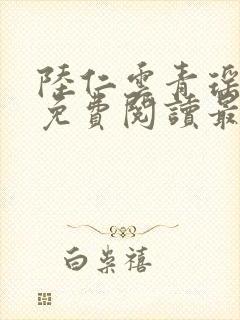 陸仁雲青瑤
免費閱讀最
白崇禧